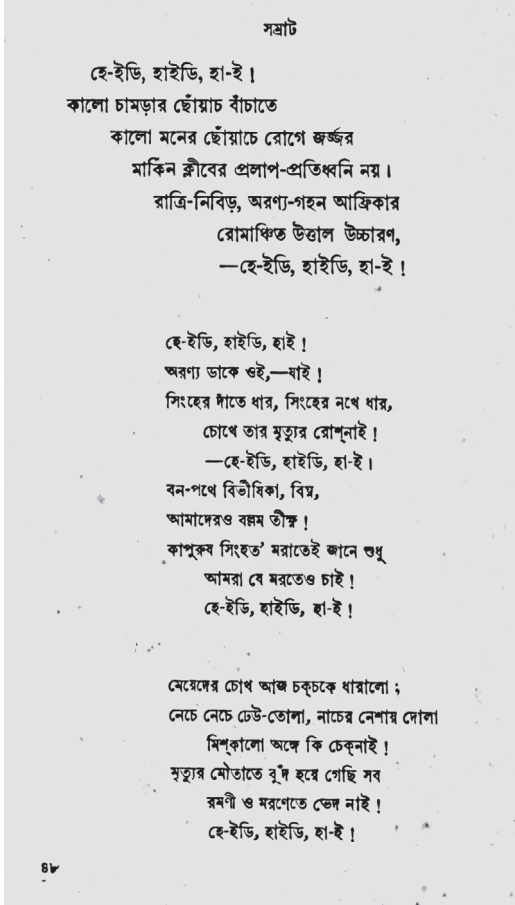 সম্রাট
হে-ইডি, হাইডি, হা-ই !
কালো চামড়ার ছোঁয়াচ বাঁচাতে
কালো মনের ছোঁয়াচে রোগে জর্জ্জর
মার্কিন ক্লীবের প্রলাপ-প্রতিধ্বনি নয় ।
রাত্রি-নিবিড়, অরণ্য-গহন আফ্রিকার
রোমাঞ্চিত উত্তাল উচ্চারণ,
—হে-ইডি, হাইডি, হা-ই !
হে-ইডি, হাইডি, হাই !
অরণ্য ডাকে ওই,—যাই !
সিংহের দাঁতে ধার, সিংহের নখে ধার,
চোখে তার মৃত্যুর রোশ্‌নাই !
—হে-ইডি, হাইডি, হা-ই ।
বন-পথে বিভীষিকা, বিঘ্ন,
আমাদেরও বল্লম তীক্ষ্ণ !
কাপুরুষ সিংহত’ মরাতেই জানে শুধু
আমরা যে মরতেও চাই !
হে-ইডি, হাইডি, হা-ই !
মেয়েদের চোখ আজ চক্‌চকে ধারালো ;
নেচে নেচে ঢেউ-তোলা, নাচের নেশায় দোলা
মিশ্‌কালো অঙ্গে কি চেক্‌নাই !
মৃত্যুর মৌতাতে বুঁদ হয়ে গেছি সব
রমণী ও মরণেতে ভেদ নাই !
হে-ইডি, হাইডি, হা-ই !
৪৮